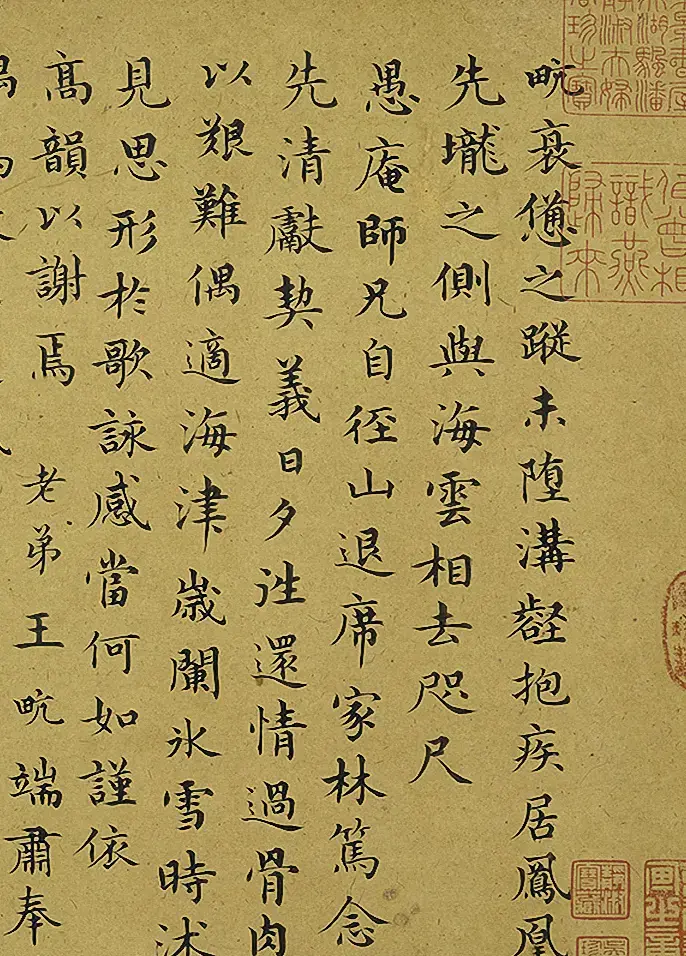 衰憊之蹤未墮溝壑抱疾居鳳凰
先壠之側與海雲相去咫尺
愚庵師兄自徑山退席家林篤念
先清獻契義日夕往還情過骨肉
以艱難偶適海津歲闌氷雪時述
見思形於歌詠感當何如謹依
高韻以謝焉 老弟王端肅奉
似曾相識燕歸來